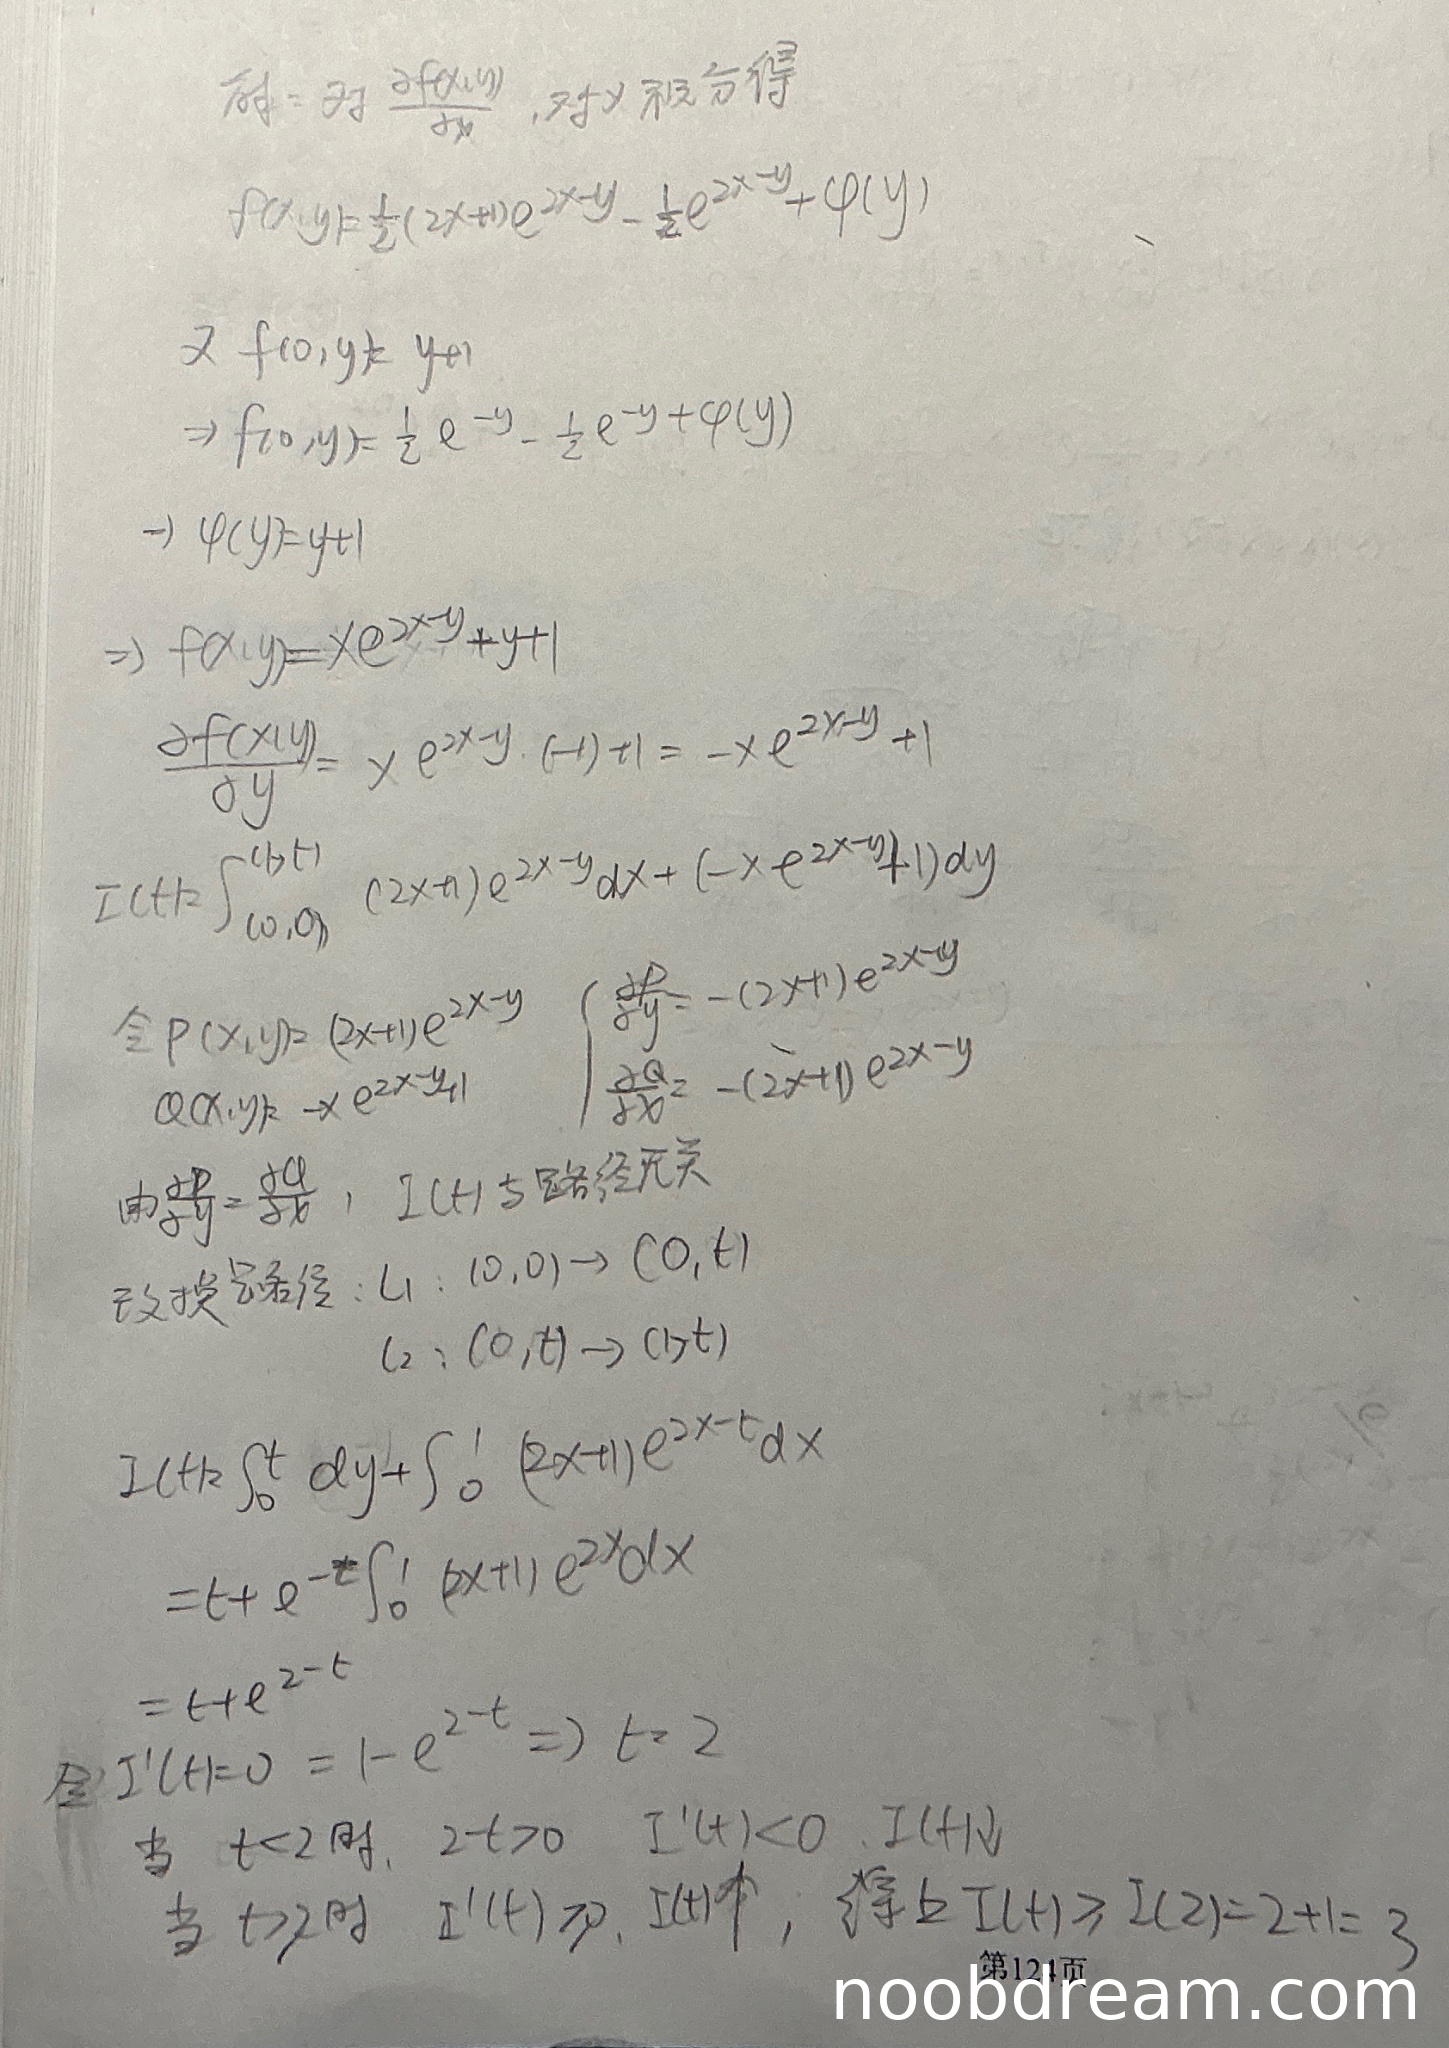 方法二 对 ∂f(x,y)/∂x ,对x积分得
f(x,y)=½(2x+1)e^{2x-y}-½e^{2x-y}+φ(y)
又 f(0,y)=y+1
⇒f(0,y)=½e^{-y}-½e^{-y}+φ(y)
→φ(y)=y+1
⇒ f(x,y)=xe^{2x-y}+y+1
∂f(x,y)/∂y = xe^{2x-y}·(-1)+1=-xe^{2x-y}+1
I(t)=∫_{(0,0)}^{(1,t)} (2x+1)e^{2x-y}dx+(-xe^{2x-y}+1)dy
令P(x,y)=(2x+1)e^{2x-y} { ∂P/∂y=-(2x+1)e^{2x-y}
Q(x,y)=-xe^{2x-y}+1 ∂Q/∂x=-(2x+1)e^{2x-y}
由∂P/∂y=∂Q/∂x, I(t)与路径无关
改换路径:L₁:(0,0)→(0,t)
L₂:(0,t)→(1,t)
I(t)=∫_0^t dy+∫_0^1 (2x+1)e^{2x-t}dx
=t+e^{-t}∫_0^1 (2x+1)e^{2x}dx
=t+e^{2-t}
令I'(t)=0=1-e^{2-t}⇒t=2
当 t<2时, 2-t>0 I'(t)<0 ,I(t)↓
当 t≥2时 I'(t)≥0, I(t)↑, 综上I(t)≥I(2)=2+1=3
第124页
noobdream.com